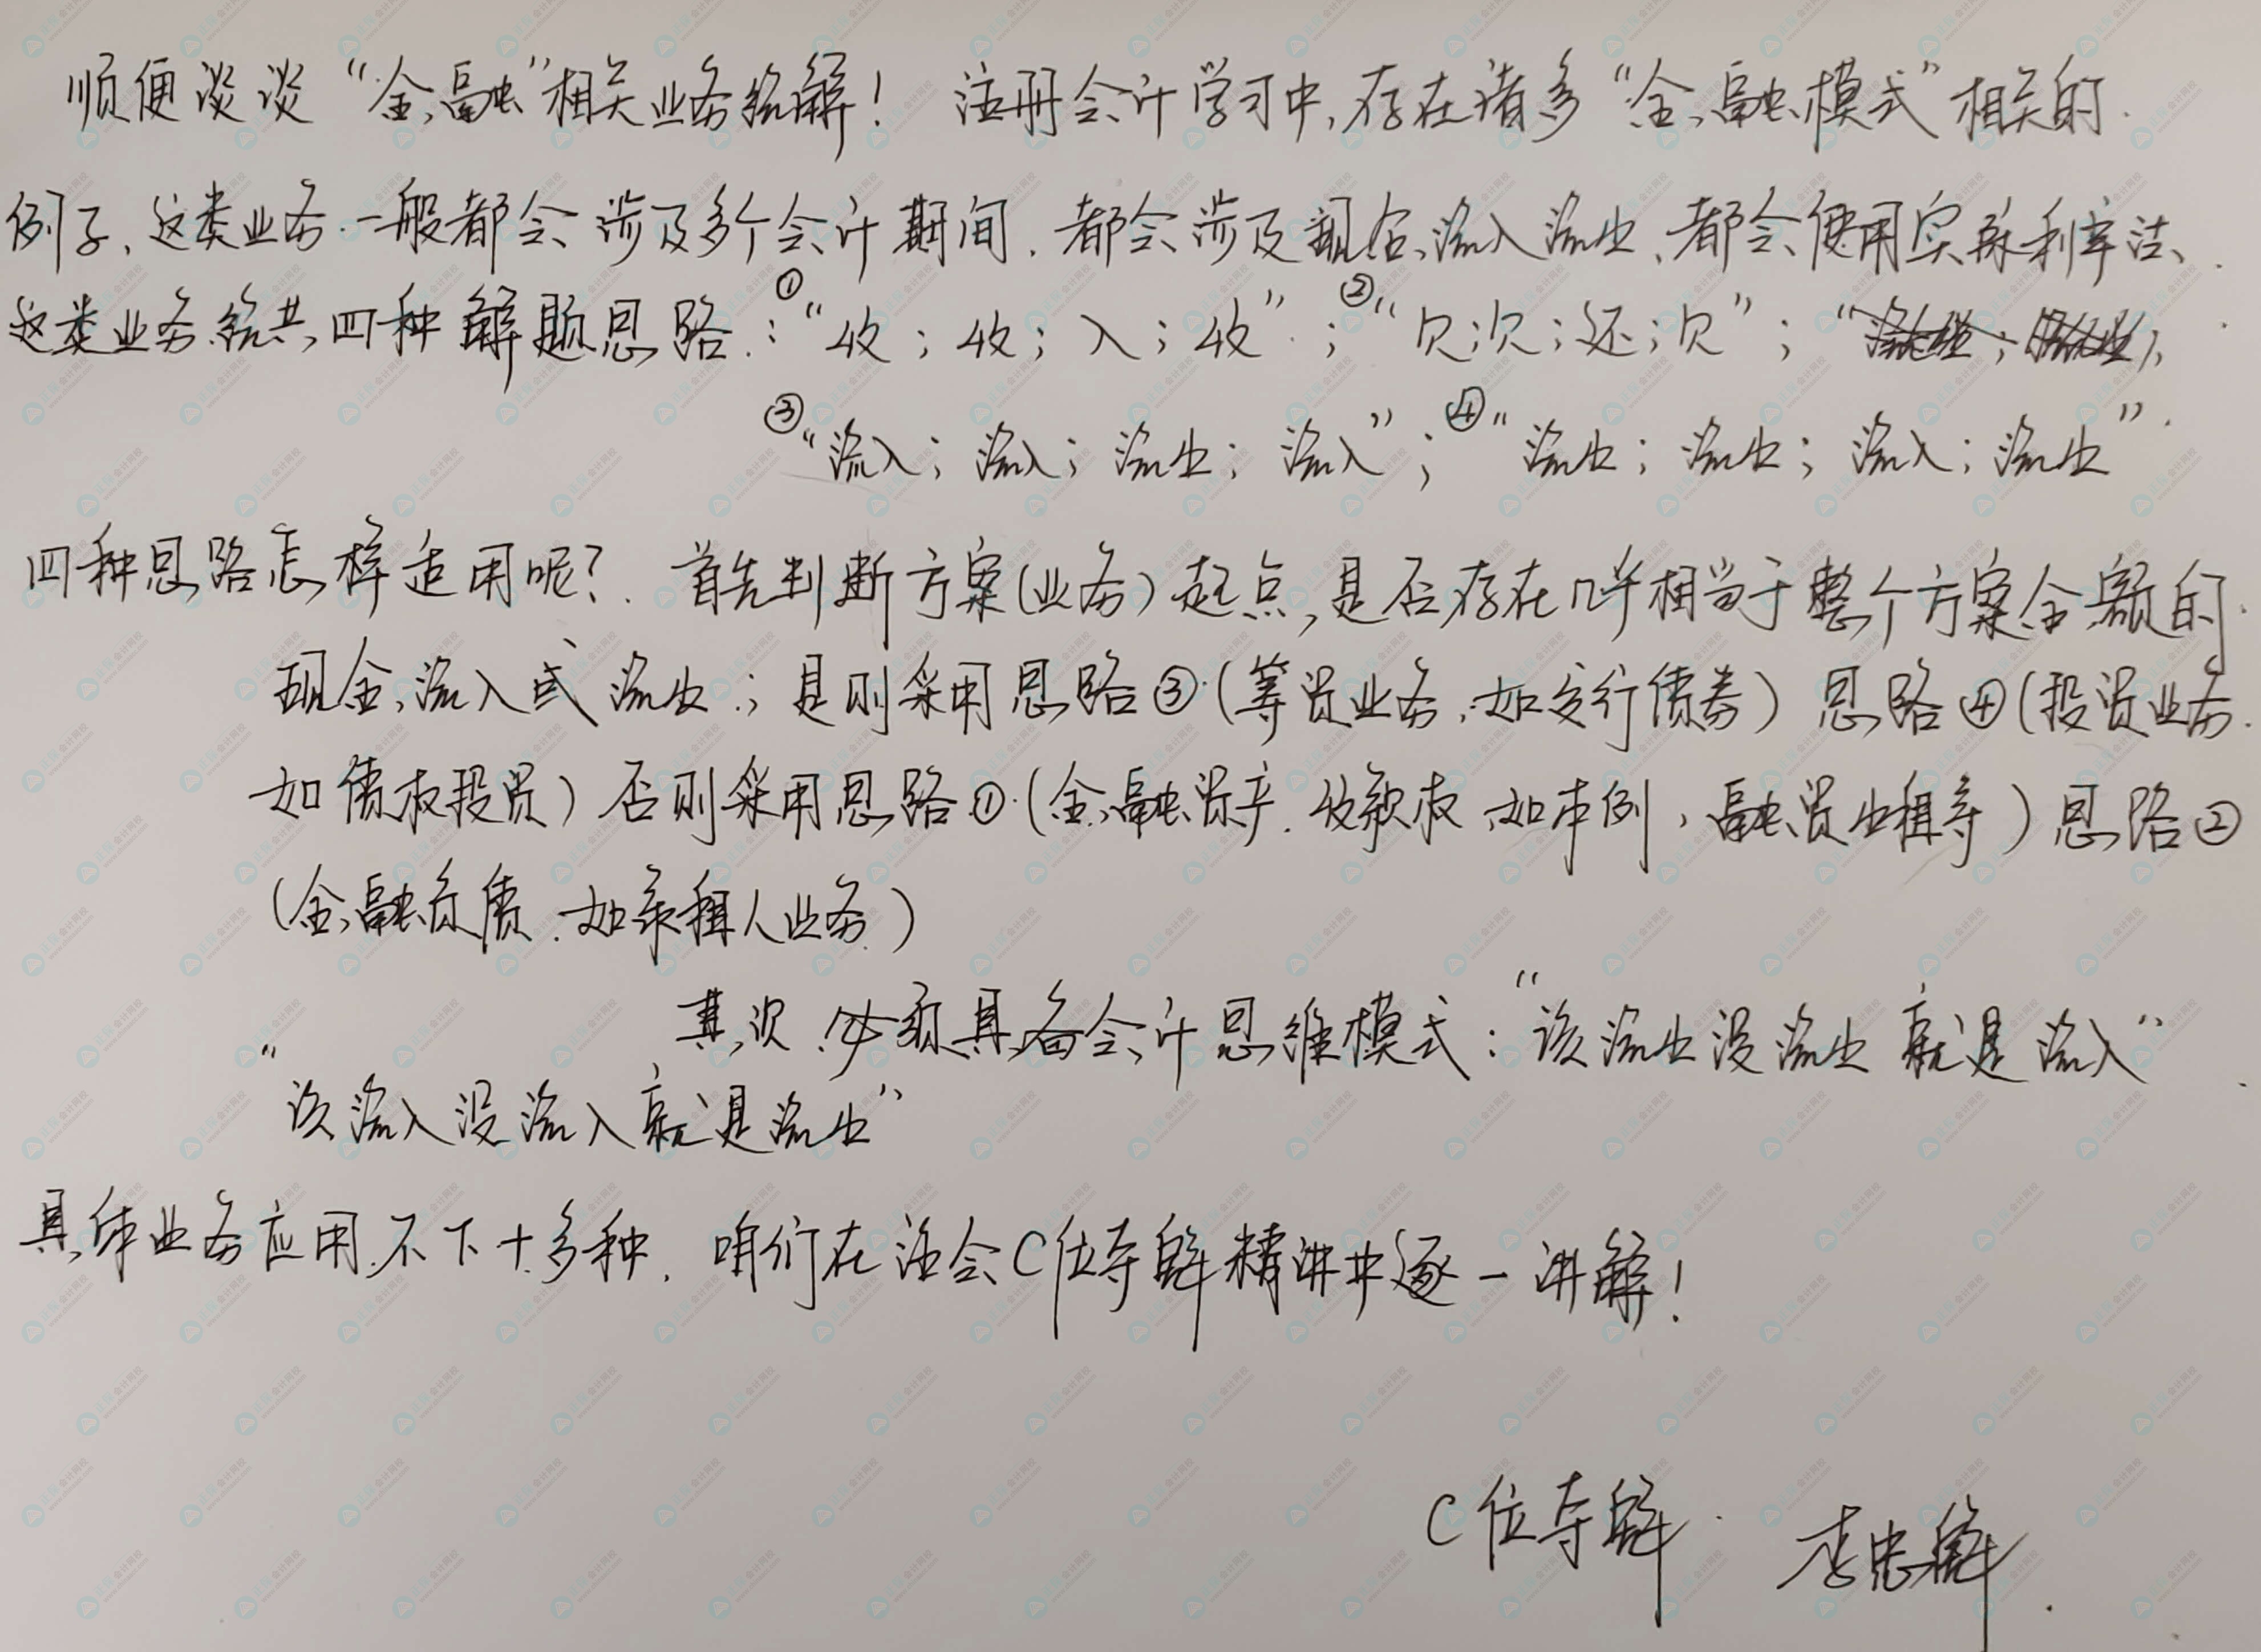 顺便谈谈“金融”相关业务统解！ 注册会计学习中，存在诸多“金融模式”相关的
例子，这类业务一般都会涉及多个会计期间，都会涉及现金流入流出，都会使用实际利率法、
这类业务统共四种解题思路：①“收；收；入；收”；②“欠；欠；还；欠”；“
③“流入；流入；流出；流入”；④“流出；流出；流入；流出”
四种思路怎样适用呢？首先判断方案（业务）起点，是否存在几乎相当于整个方案金额的
现金流入或流出；是则采用思路③（筹资业务，如发行债券）思路④（投资业务
如债权投资）否则采用思路①（金融资产，收款权，如本例，融资出租等）思路②
（金融负债，如承租人业务）
其次，必须具备会计思维模式：“该流出没流出就是流入”
“该流入没流入就是流出”
具体业务应用不下十多种，咱们在注会C位夺魁精讲中逐一讲解！
C位夺魁 李忠魁
正保会计网校